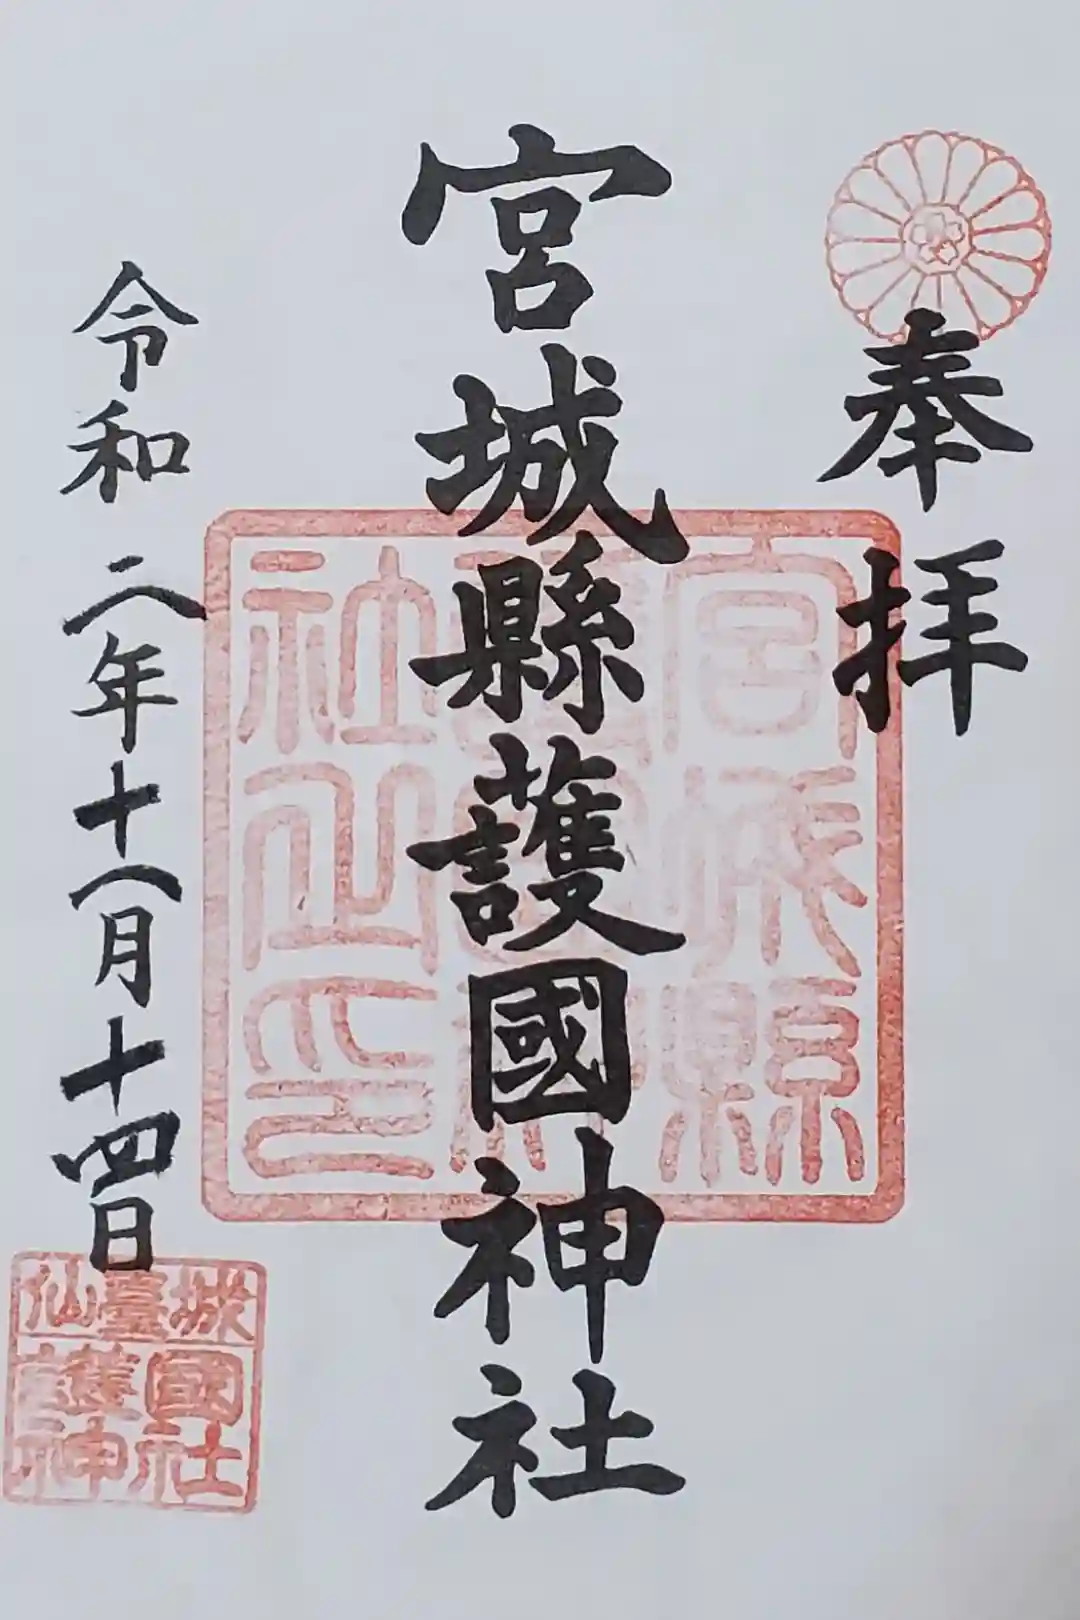 奉拝
宮城縣護國神社
令和二年十一月十四日
宮城縣
護國神
社之印
仙臺城
護國
神社